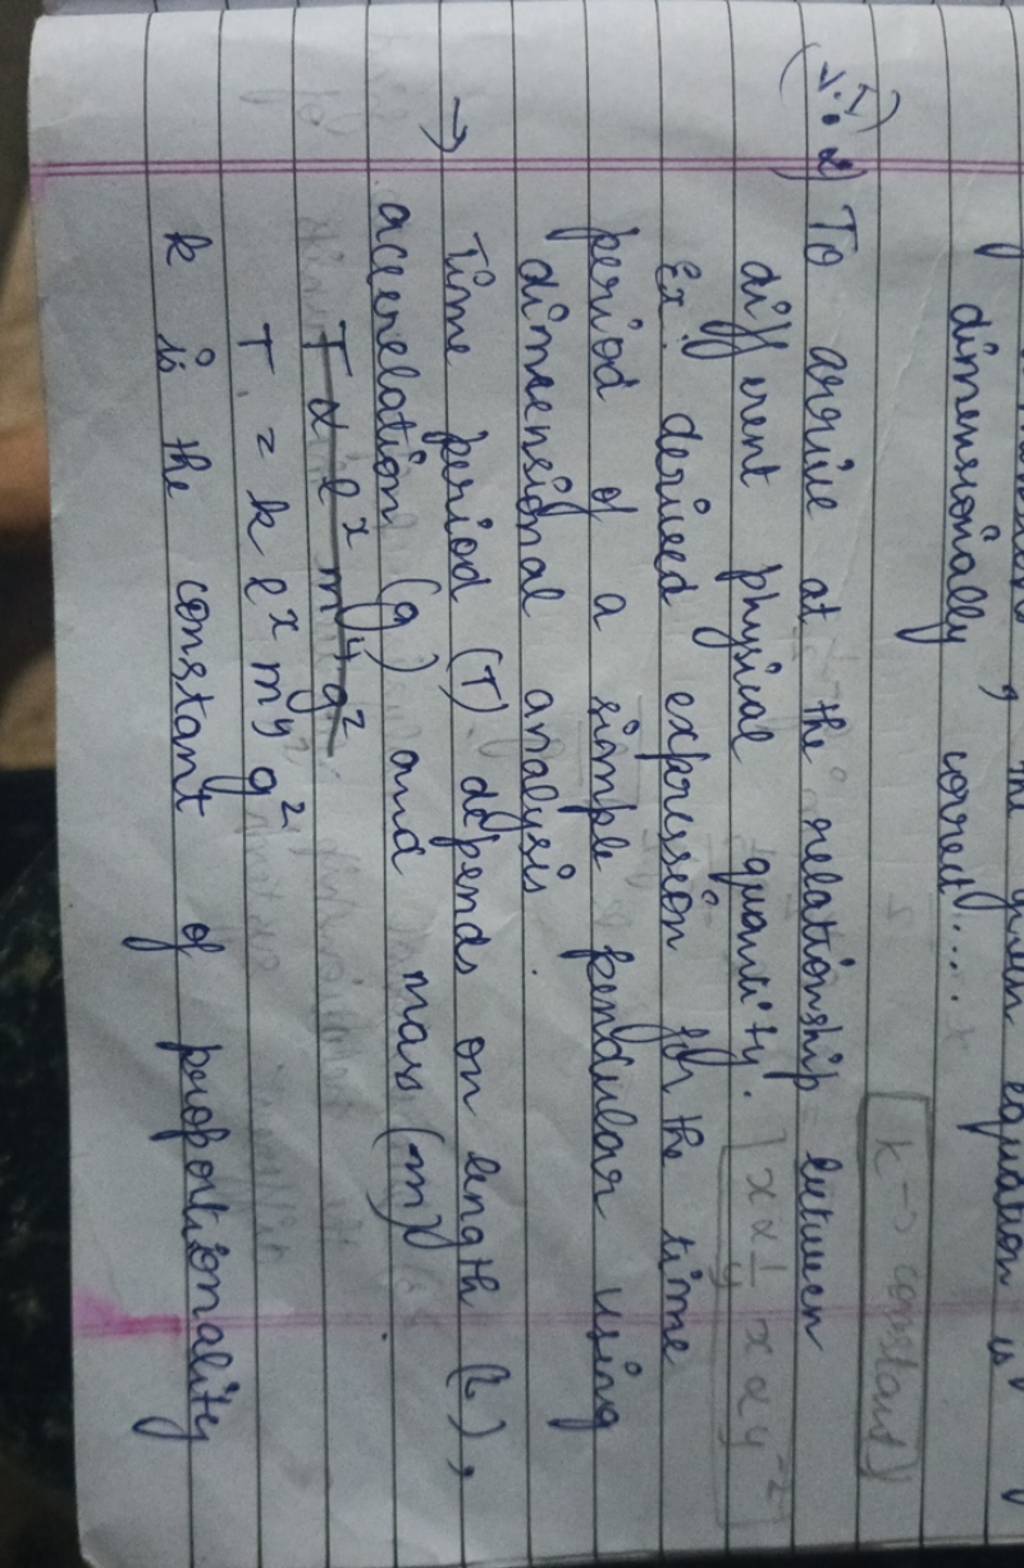 equation is
dimensionally, correct....
k → constant
(V.I) 2) To arrive at the relationship between
different physical quantity. x α 1/y x α y⁻²
Ex: derived expression for the time
period of a simple pendular using
dimensional analysis.
→ Time period (T) depends on length (l),
accerelation (g) and mass (m).
T α l^x m^y g^z
T = k l^x m^y g^z
k is the constant of propontionality